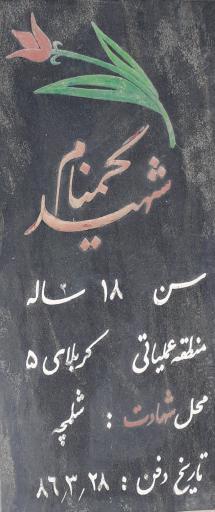 شهید گمنام
سن ۱۸ ساله
منطقه عملیاتی کربلای ۵
محل شهادت : شلمچه
تاریخ دفن : ۸۶٫۳٫۲۸